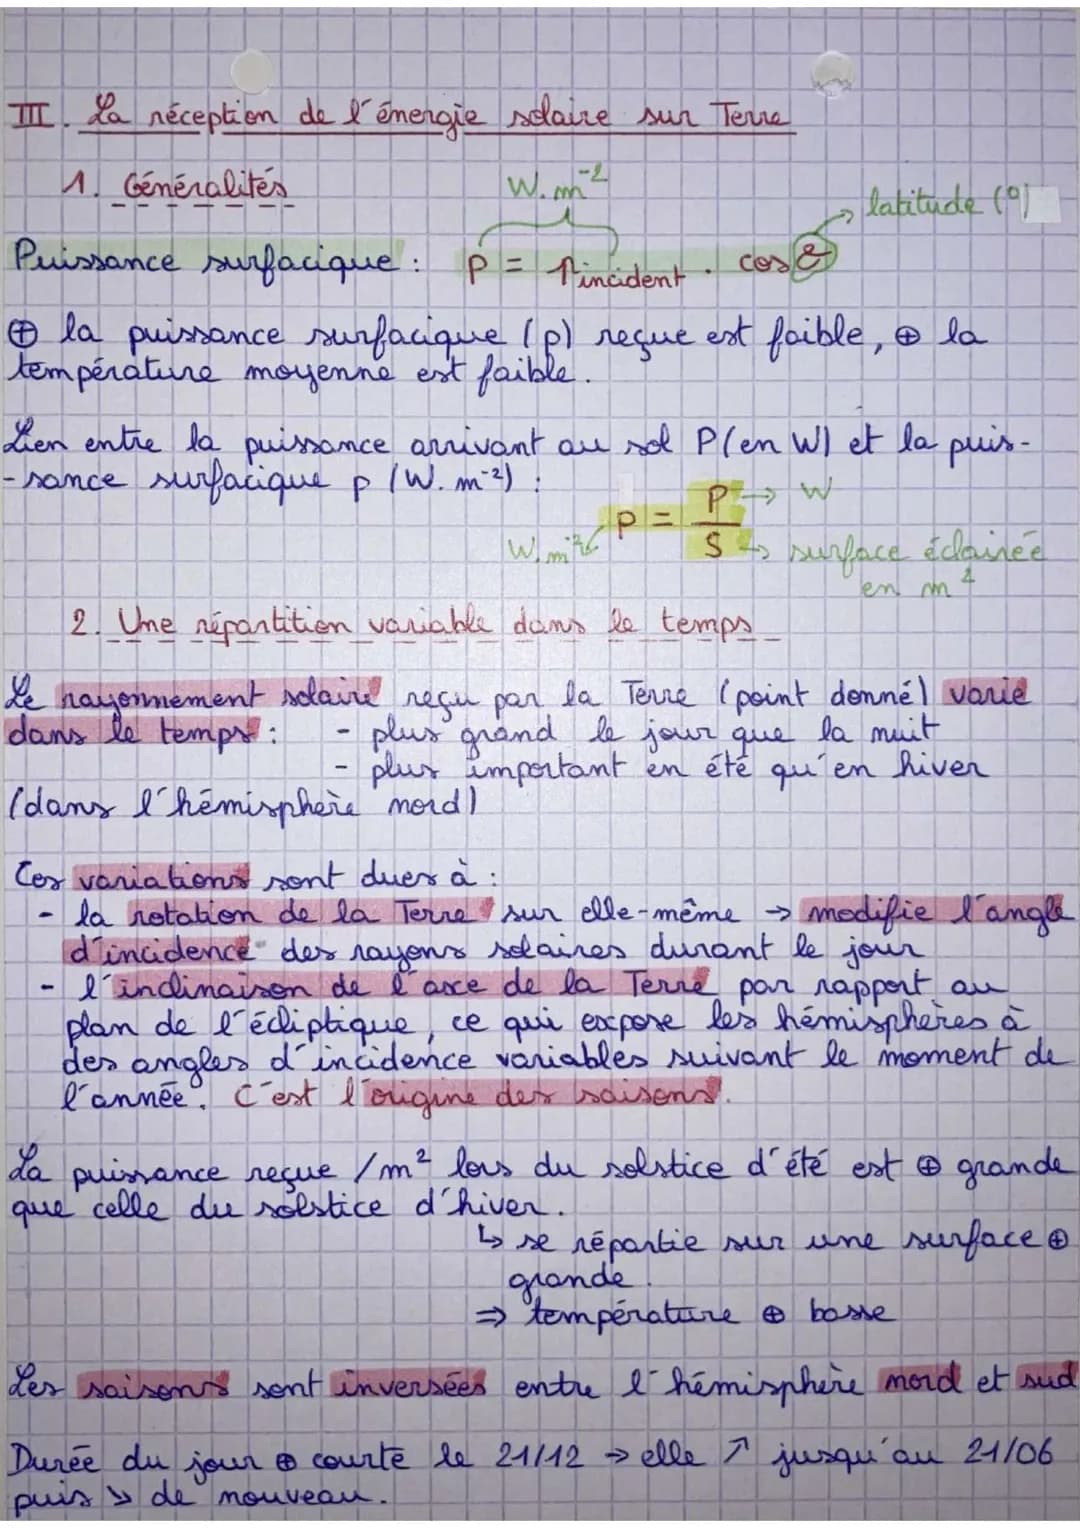 III. La réception de l'énergie solaire sur Terre
1. Généralités
W.m⁻²
latitude (°)
Puissance surfacique : p = pincident . cos
⊕ la puissance surfacique (p) reçue est faible, ⊕ la
température moyenne est faible.
Lien entre la puissance arrivant au sol P(en W) et la puis-
-sance surfacique p (W.m⁻²) :
p = P/S → W
W.m⁻²
↳ surface éclairée
en m²
2. Une répartition variable dans le temps
Le rayonnement solaire reçu par la Terre (point donné) varie
dans le temps : - plus grand le jour que la nuit
- plus important en été qu'en hiver
(dans l'hémisphère nord)
Ces variations sont dues à :
- la rotation de la Terre sur elle-même → modifie l'angle
d'incidence des rayons solaires durant le jour
- l'inclinaison de l'axe de la Terre par rapport au
plan de l'écliptique, ce qui expose les hémisphères à
des angles d'incidence variables suivant le moment de
l'année. C'est l'origine des saisons.
La puissance reçue /m² lors du solstice d'été est ⊕ grande
que celle du solstice d'hiver.
↳ se répartie sur une surface ⊕
grande.
⇒ température ⊕ basse
Les saisons sont inversées entre l'hémisphère nord et sud
Durée du jour ⊕ courte le 21/12 → elle ↗ jusqu'au 21/06
puis ↘ de nouveau.